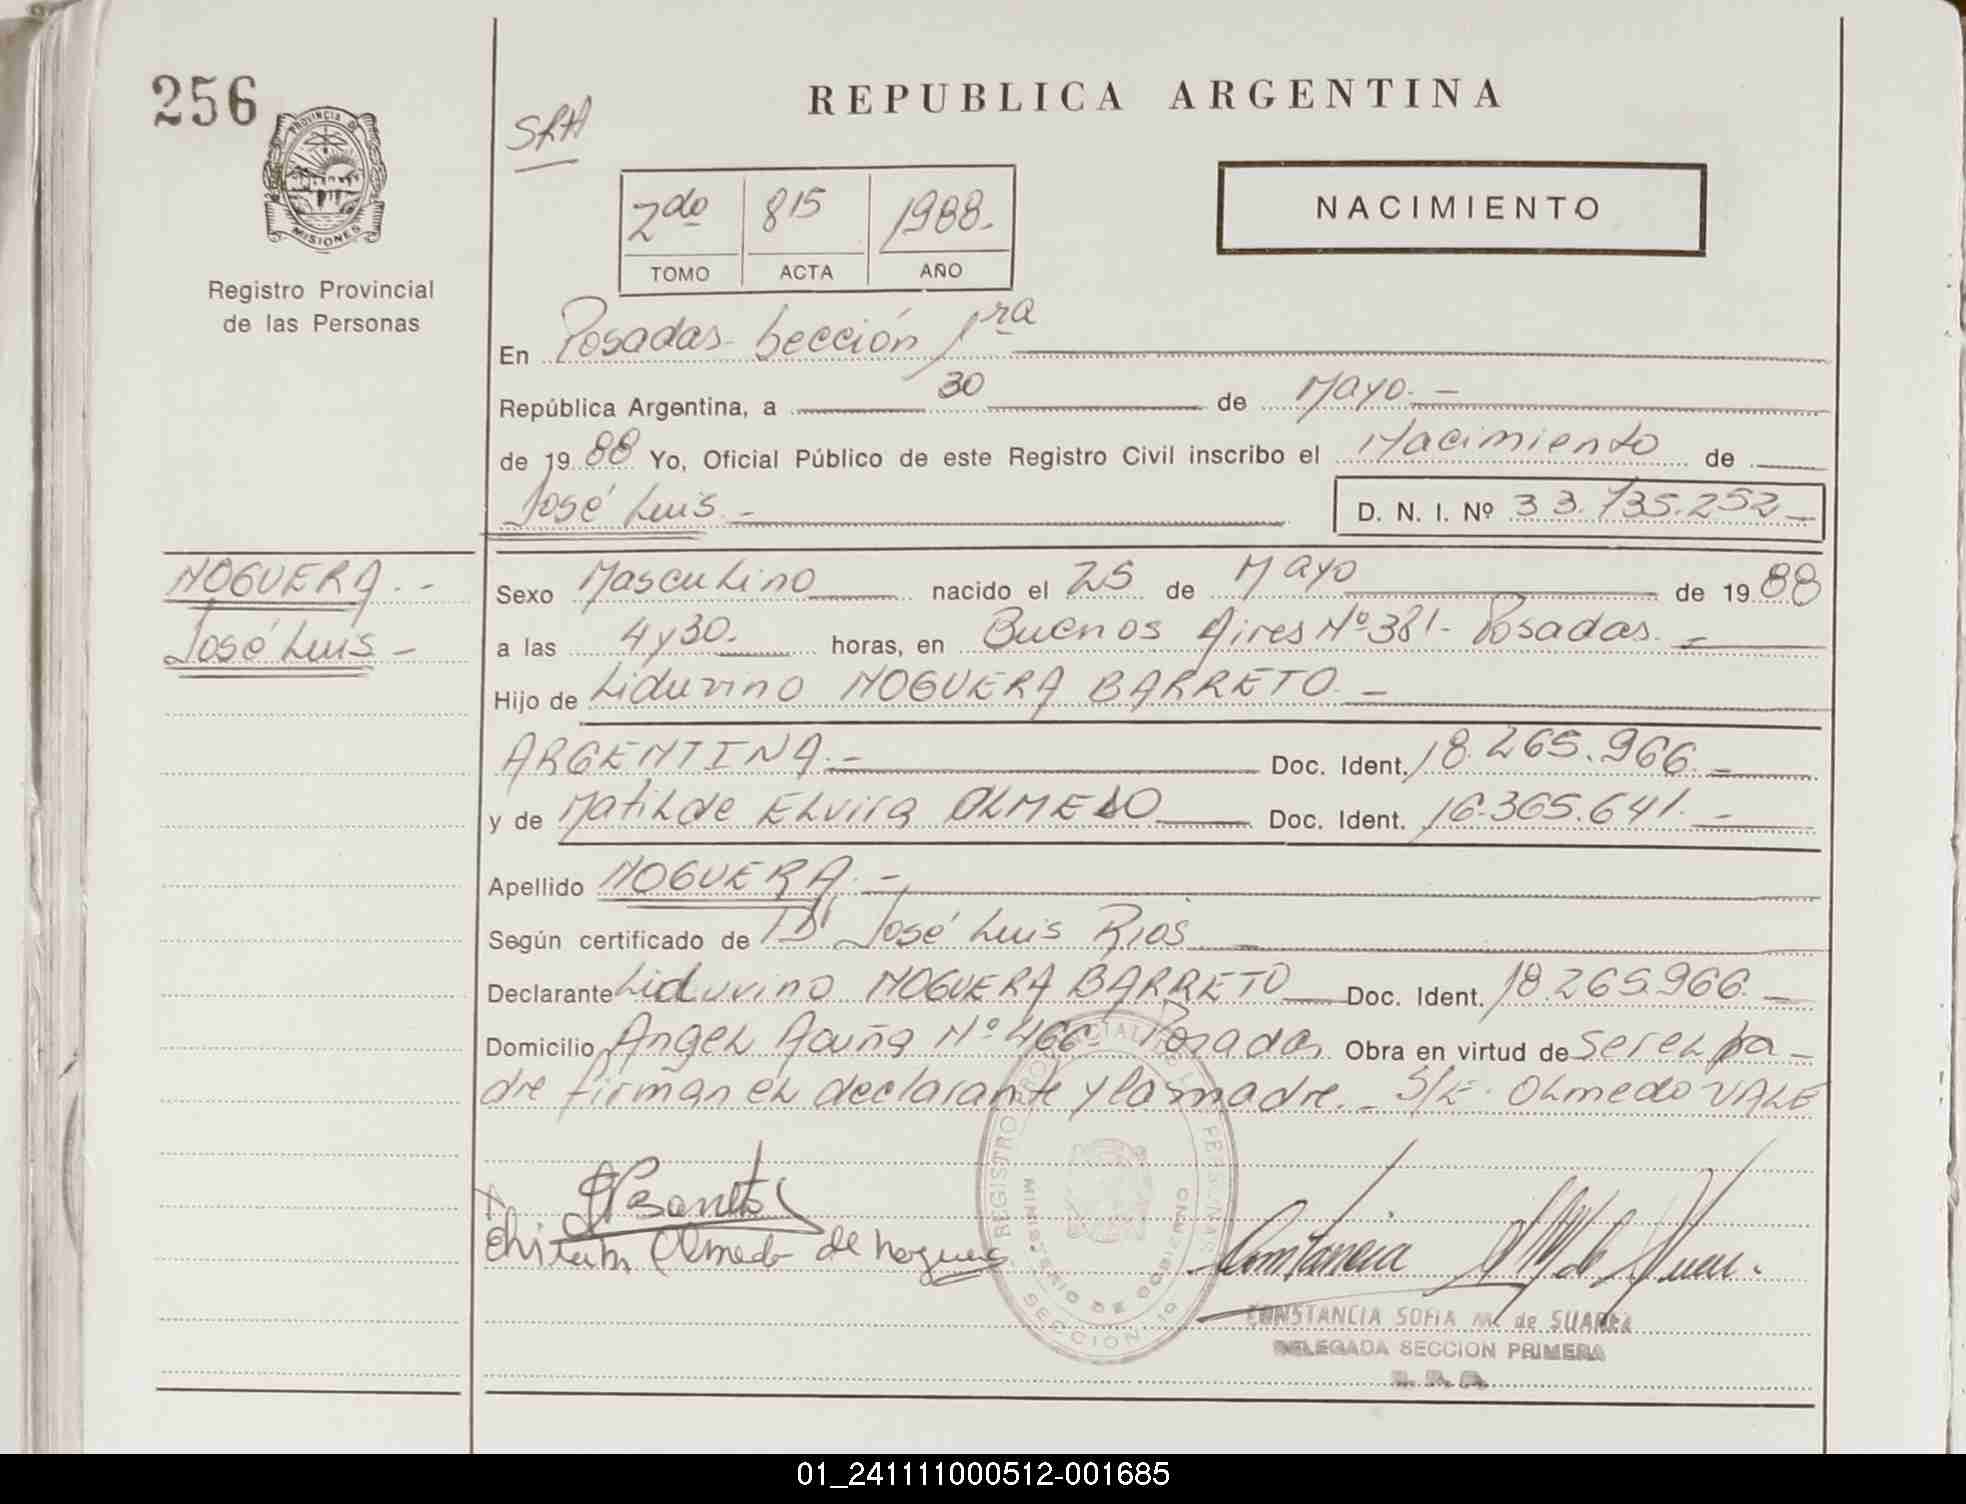 256
PROVINCIA DE
MISIONES
Registro Provincial
de las Personas
REPUBLICA ARGENTINA
NACIMIENTO
2do 815 1988.-
TOMO ACTA AÑO
En Posadas- Sección 1ra
República Argentina, a 30 de Mayo.-
de 1988 Yo, Oficial Público de este Registro Civil inscribo el Nacimiento de
José Luis.- D. N. I. Nº 33.735.252-
NOGUERA.-
José Luis-
Sexo Masculino nacido el 25 de Mayo de 1988
a las 4 y 30. horas, en Buenos Aires Nº 381- Posadas.-
Hijo de Liduvino NOGUERA BARRETO.-
ARGENTINA.- Doc. Ident. 18.265.966.-
y de Matilde Elvira OLMEDO Doc. Ident. 16.365.641.-
Apellido NOGUERA.-
Según certificado de Dr José Luis Rios
Declarante Liduvino NOGUERA BARRETO Doc. Ident. 18.265.966.-
Domicilio Angel Acuña Nº 466- Posadas Obra en virtud de ser el pa-
dre firman el declarante y la madre.- S/L. Olmedo VALE
Olmedo de Noguera
Constancia
REGISTRO PROVINCIAL DE LAS PERSONAS
MINISTERIO DE GOBIERNO
SECCION 1º
CONSTANCIA SOFIA M. de SUAREZ
DELEGADA SECCION PRIMERA
01_241111000512-001685